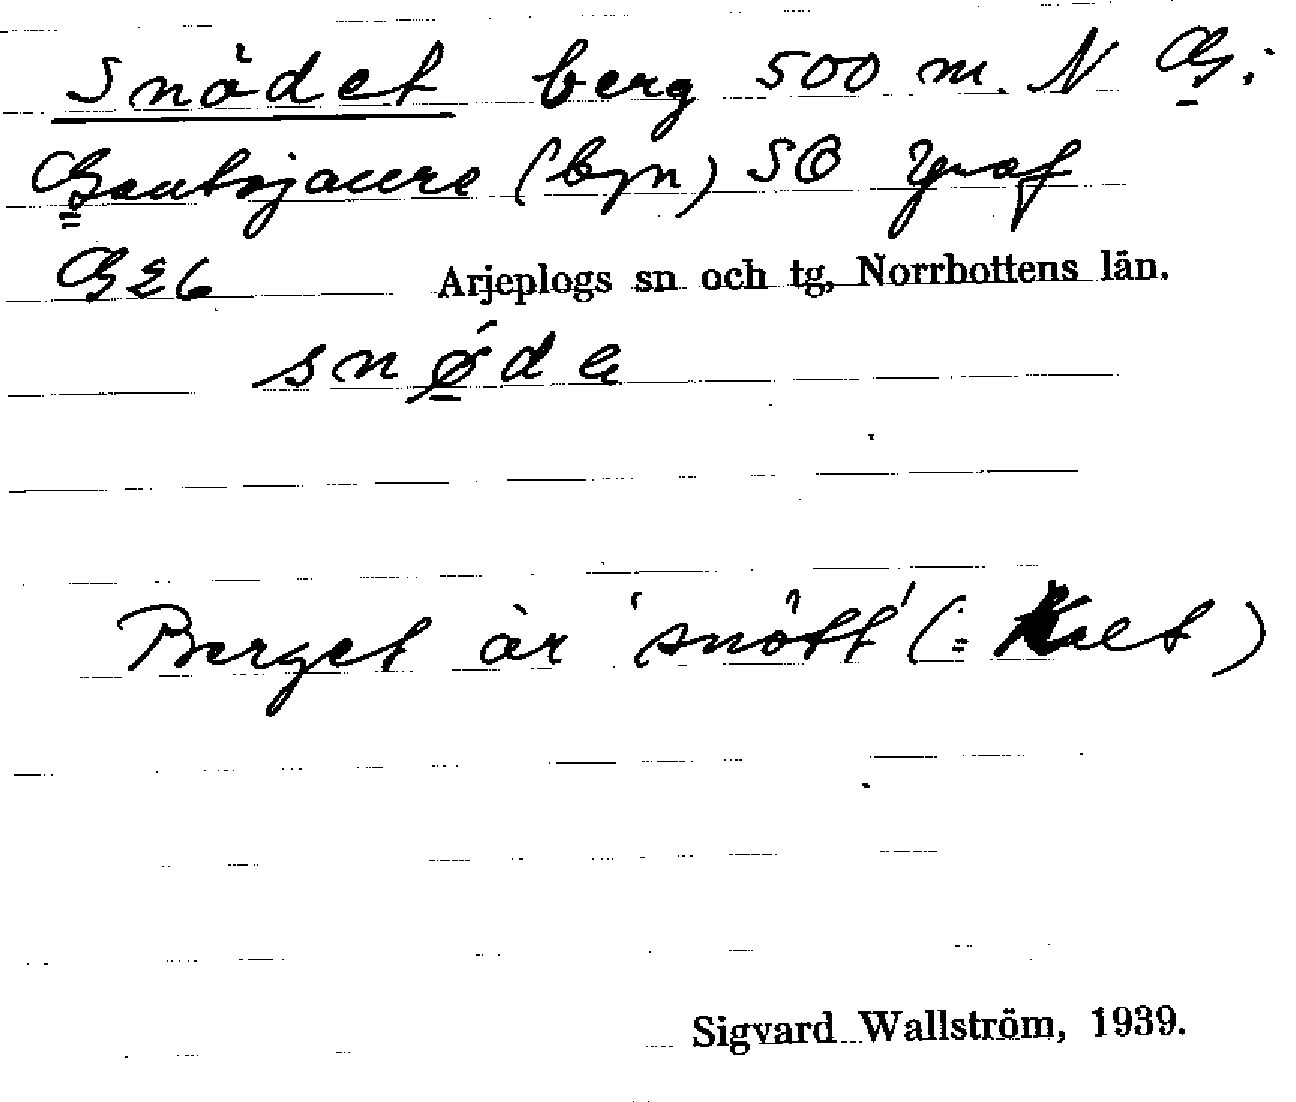 Snödet berg 500 m. N G.
Gautojaure (byn) SO graf
G26 Arjeplogs sn och tg, Norrbottens län.
snǿ̱de
Berget är 'snött' (= kalt)
Sigvard Wallström, 1939.